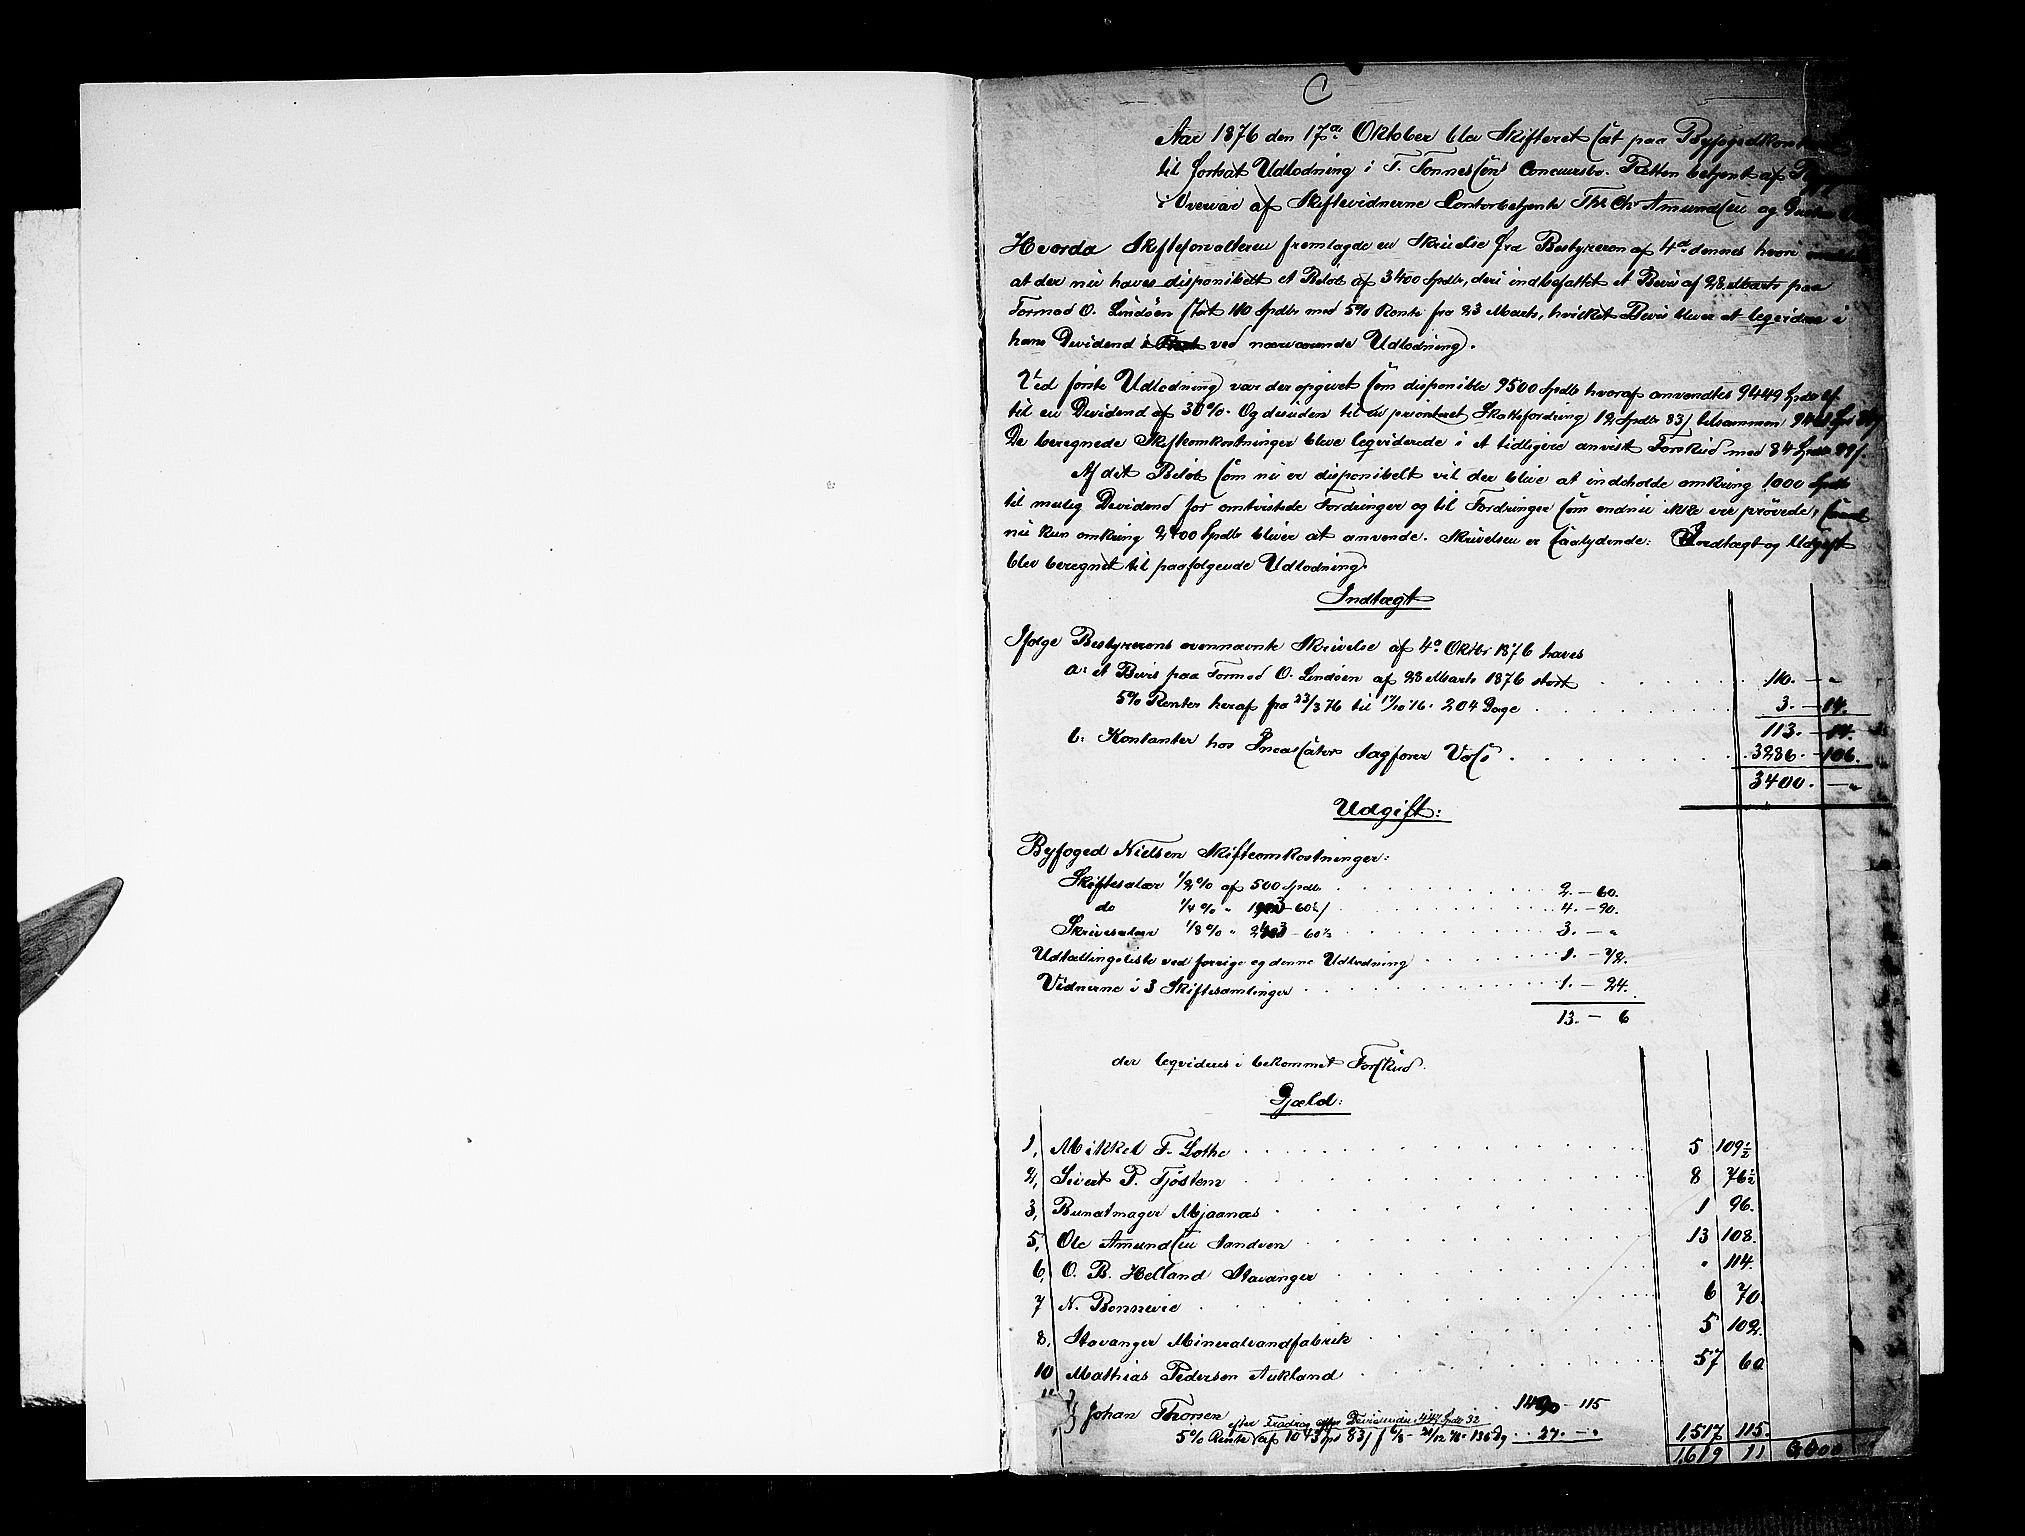 C
Aar 1876 den 17de Oktober blev Skifteret sat paa
til fortsat Udlodning i T. Tønnessens Concursbo. Retten betjent af
i Overvær af Skiftevidnerne Contorbetjente Ths. Chr Amundsen og
Hvorda Skifteforvalteren fremlagde en Skrivelse fra Bestyreren af 4de dennes hvori
at der nu haves disponibelt et Beløb af 3400 Spdlr, deri indbefattet et Bevis af 23 Marts paa
Tormod O. Lindøen stort 110 Spdlr med 5% Rente fra 23 Marts, hvilket Bevis bliver at leqvidere i
hans Devidend i ved nærværende Udlodning.
Ved første Udlodning var der opgivet som disponible 9500 Spdlr hvoraf anvendtes 9449 Spdlr
til en Devidend af 30%. Og desuden til en prioriteret Skattefordring 12 Spdlr 83 s tilsammen
De beregnede Skifteomkostninger bleve leqviderede i et tidligere anvist Forskud med 84 Spdlr 29 s.
Af det Beløb som nu er disponibelt vil der blive at indeholde omkring 1000 Spdlr
til mulig Devidend for omtvistede Fordringer og til Fordringer som endnu ikke ere prøvede,
nu kun omkring 2400 Spdlr bliver at anvende. Skrivelsen er saalydende: Indtægt og Udgift
blev beregnet til paafølgende Udlodning.
Indtægt
Ifølge Bestyrerens ovennævnte Skrivelse af 4de Oktbr 1876 haves
a: et Bevis paa Tormod O. Lindøen af 23 Marts 1876 stort 110. — "
5% Renter heraf fra 23/3 76 til 17/10 76. 204 Dage 3. — 14.
113. — 14.
b. Kontanter hos Incassator Sagfører Vols 3286. — 106.
3400. — "
Udgift:
Byfoged Nielsen Skifteomkostninger:
Skiftesalær 1/2% af 500 Spdlr 2. — 60.
do 1/4% " 1903 — 60 1/2 4. — 90.
Skrivesalær 1/8% " 2403 — 60 1/2 3. — "
Udtællingsliste ved forrige og denne Udlodning 1. — 72.
Vidnerne i 3 Skiftesamlinger 1. — 24.
13. — 6
der leqvideres i bekommet Forskud.
Gjæld:
1, Mikkel T. Lothe 5 109 1/2
2, Sivert P. Tjøstem 8 76 1/2
3, Buntmager Mjaanæs 1 96.
5, Ole Amundsen Sandven 13 108.
6, O. B. Helland Stavanger " 114.
7 N. Bonnevie 6 70.
8, Stavanger Mineralvandfabrik 5 102.
10 Mathias Pedersen Aukland 57 60
11 Johan Thorsen 1490 — 115
efter Fradrag Devidender 447 Spdlr 32
5% Rente af 1043 Spd 83 s 27. — " 1,517 115.
1619 11